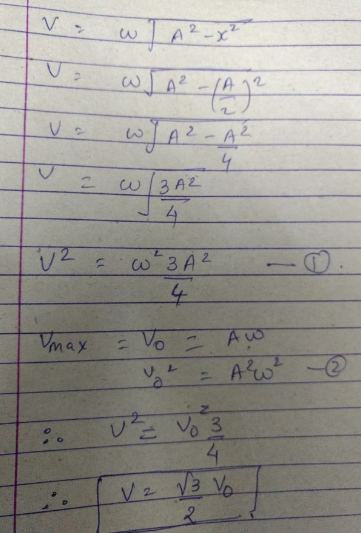 V = ω√(A² - x²)
V = ω√(A² - (A/2)²)
V = ω√(A² - A²/4)
V = ω√(3A²/4)
V² = ω² 3A²/4 — ①
Vmax = V₀ = Aω
V₀² = A²ω² — ②
∴ V² = V₀² 3/4
∴ V = √3/2 V₀